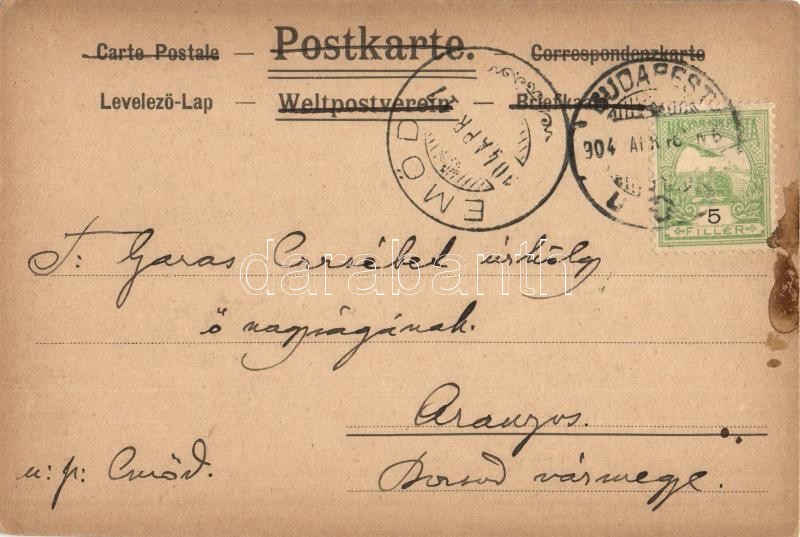 Carte Postale — Postkarte. — Correspondenzkarte
Levelező-Lap — Weltpostverein — Briefka
EMŐD
904 APR
BUDAPEST
904 APR 16
5
FILLÉR
T: Garas Erzsébet úrhölgy
ő nagyságának.
Aranyos.
u. p: Emőd.
Borsod vármegye.
darabanth